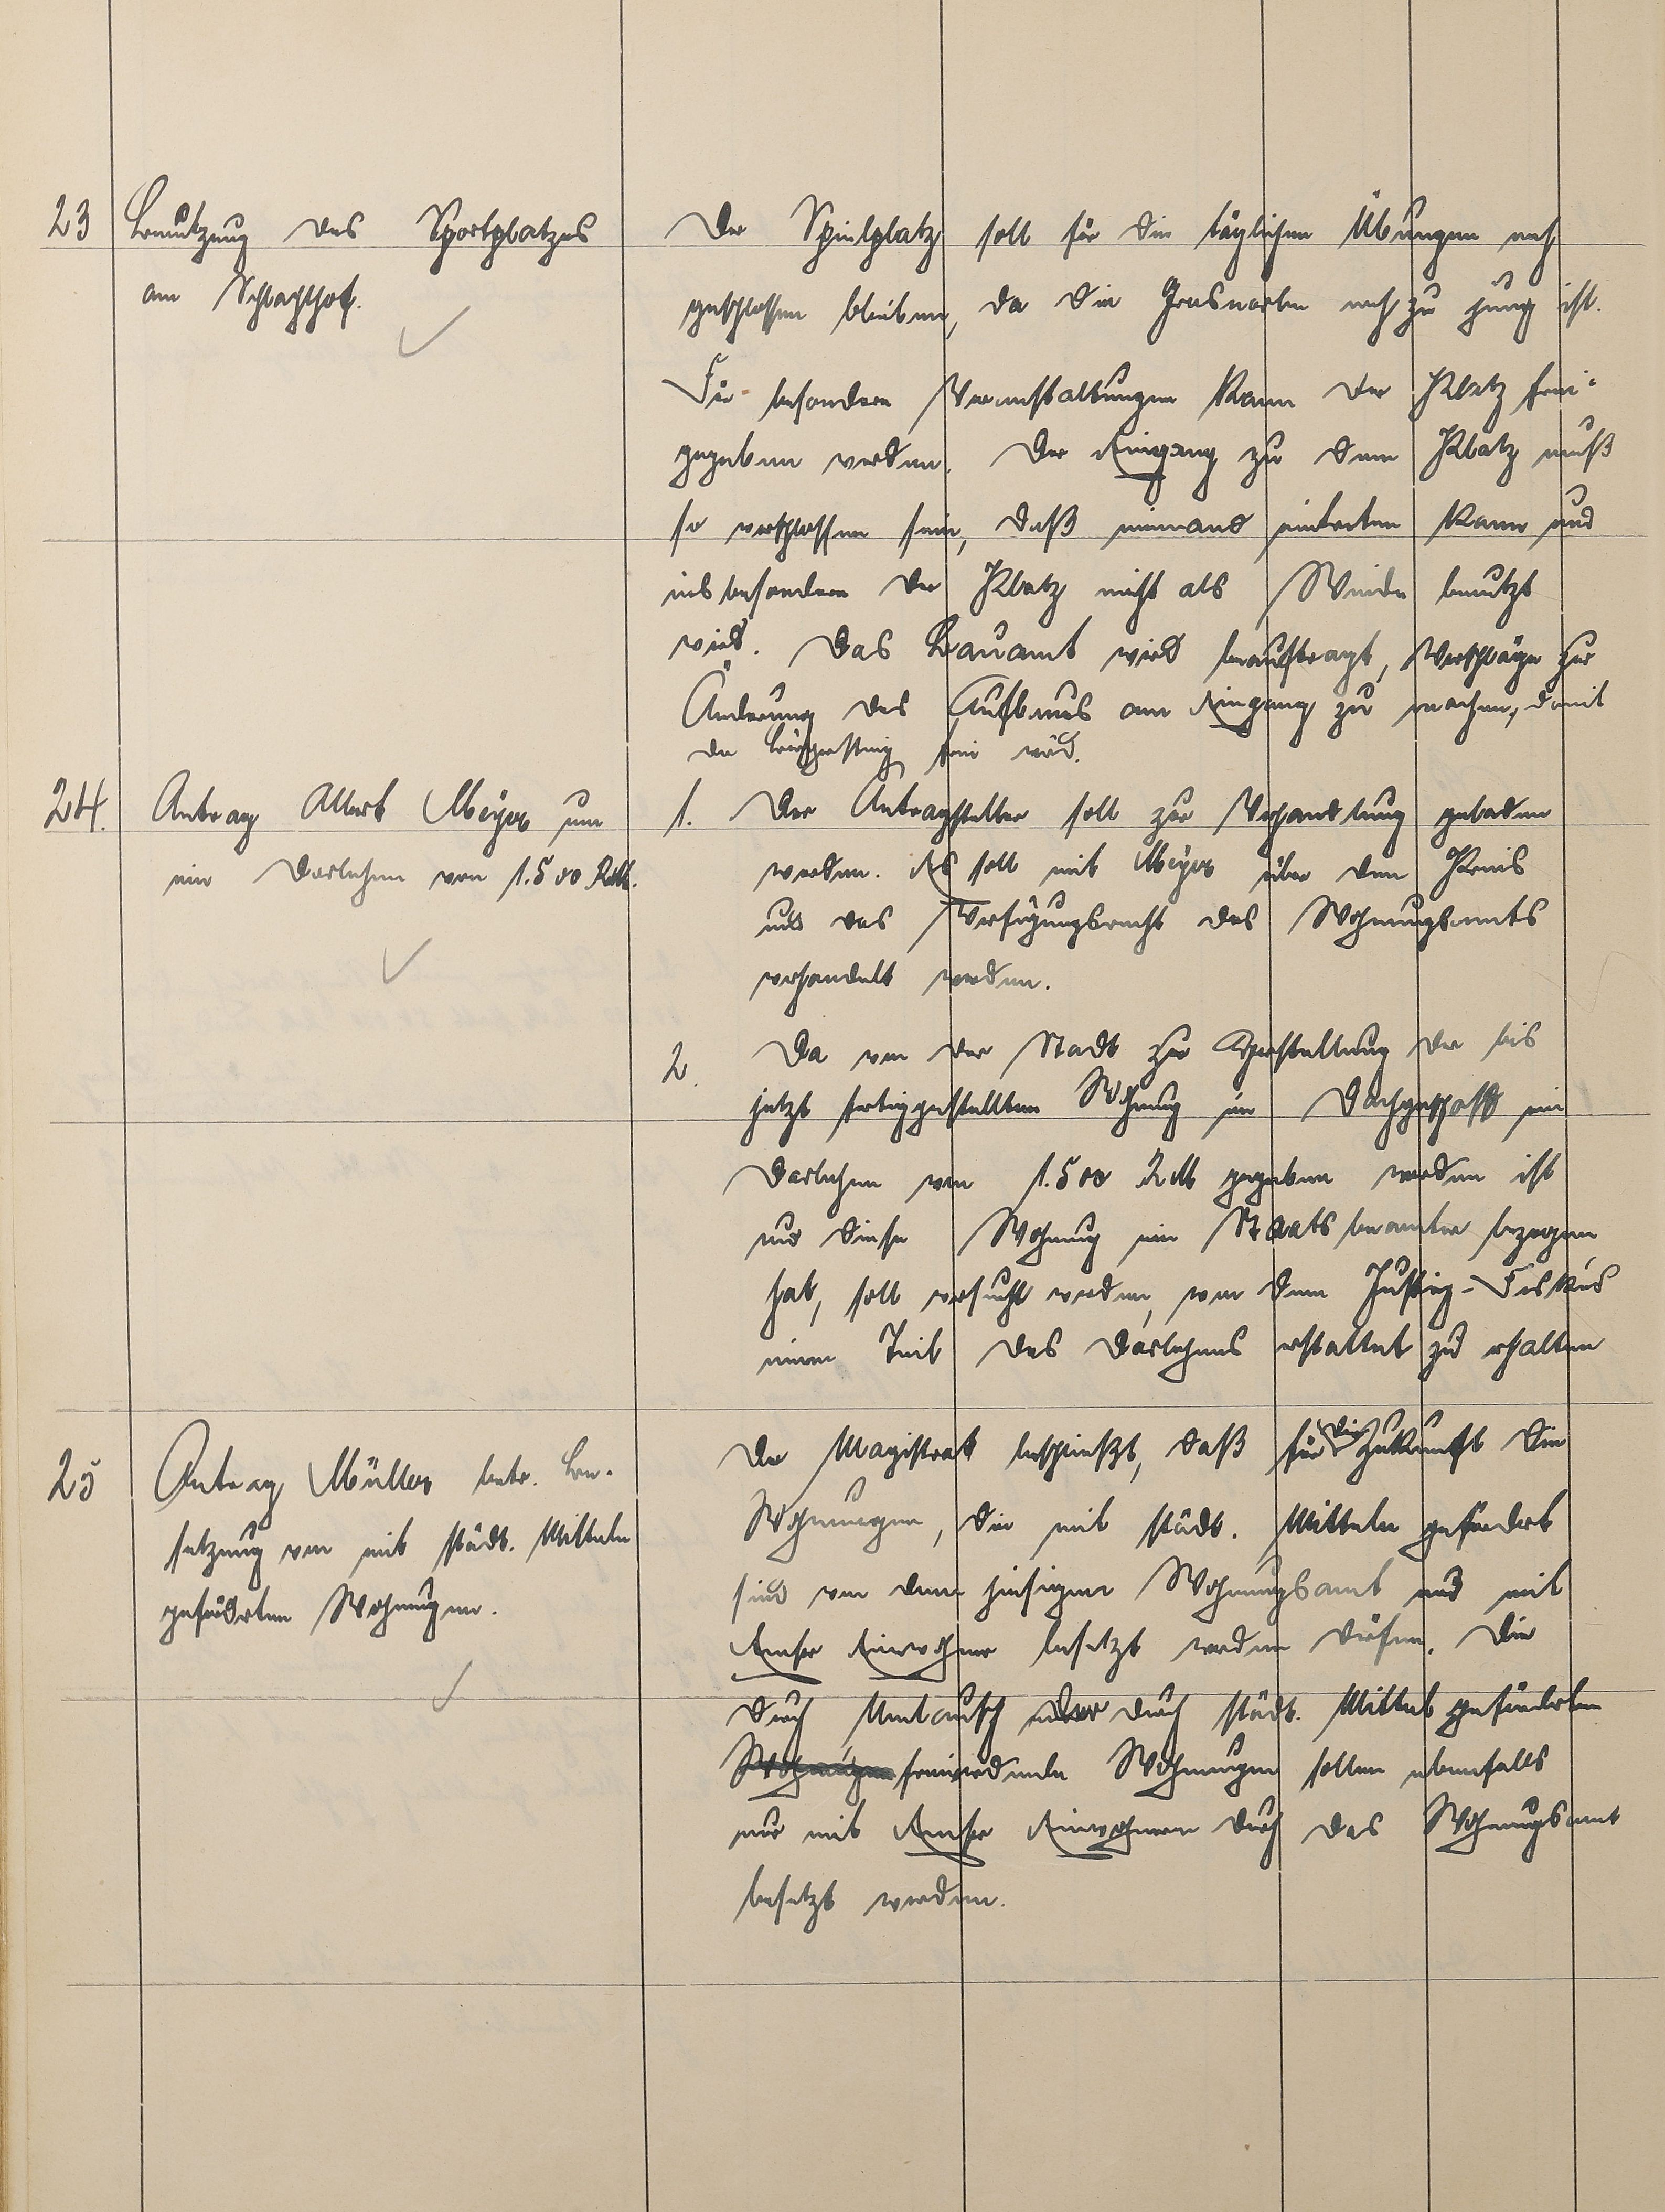 23
Benützung des Sportplatzes
am Schlachthof.
Der Spielplatz soll für die täglichen Übungen noch
geschlossen bleiben, da die Grasnarbe noch zu jung ist.
Für besondere Veranstaltungen kann der Platz frei-
gegeben werden. Der Eingang zu dem Platz muß
so verschlossen sein, daß niemand eintreten kann und
insbesondere der Platz nicht als Weide benutzt
wird. Das Bauamt wird beauftragt, Vorschläge zur
Änderung des Aufbaues am Eingang zu machen, damit
der Bürgersteig frei wird.
24.
Antrag Albert Meyer um
ein Darlehen von 1.500 RM.
1. Der Antragsteller soll zur Verhandlung geladen
werden. Es soll mit Meyer über den Preis
und das Verfügungsrecht des Wohnungsamts
verhandelt werden.
2. Da von der Stadt zur Herstellung der bis
jetzt fertiggestellten Wohnung im Dachgeschoß ein
Darlehen von 1.500 RM gegeben worden ist
und diese Wohnung ein Staatsbeamter bezogen
hat, soll versucht werden, von dem Justiz-Fiskus
einen Teil des Darlehens erstattet zu erhalten
25
Antrag Müller betr. Be-
setzung von mit städt. Mitteln
geförderten Wohnungen.
Der Magistrat beschließt, daß für die Zukunft die
Wohnungen, die mit städt. Mitteln gefördert
sind von dem hiesigen Wohnungsamt nur mit
Emser Einwohner besetzt werden dürfen. Die
durch Umtausch der durch städt. Mittel geförderten
Wohnungen freiwerdende Wohnungen sollen ebenfalls
nur mit Emser Einwohnern durch das Wohnungsamt
besetzt werden.